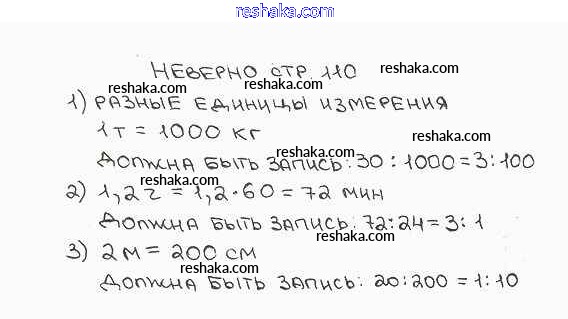 reshaka.com
НЕВЕРНО СТР. 110
reshaka.com
reshaka.com
reshaka.com
1) РАЗНЫЕ ЕДИНИЦЫ ИЗМЕРЕНИЯ
1 т = 1000 кг
reshaka.com
reshaka.com
ДОЛЖНА БЫТЬ ЗАПИСЬ: 30 : 1000 = 3 : 100
reshaka.com
2) 1,2 ч = 1,2 · 60 = 72 мин
ДОЛЖНА БЫТЬ ЗАПИСЬ: 72 : 24 = 3 : 1
reshaka.com
3) 2 м = 200 см
reshaka.com
ДОЛЖНА БЫТЬ ЗАПИСЬ: 20 : 200 = 1 : 10